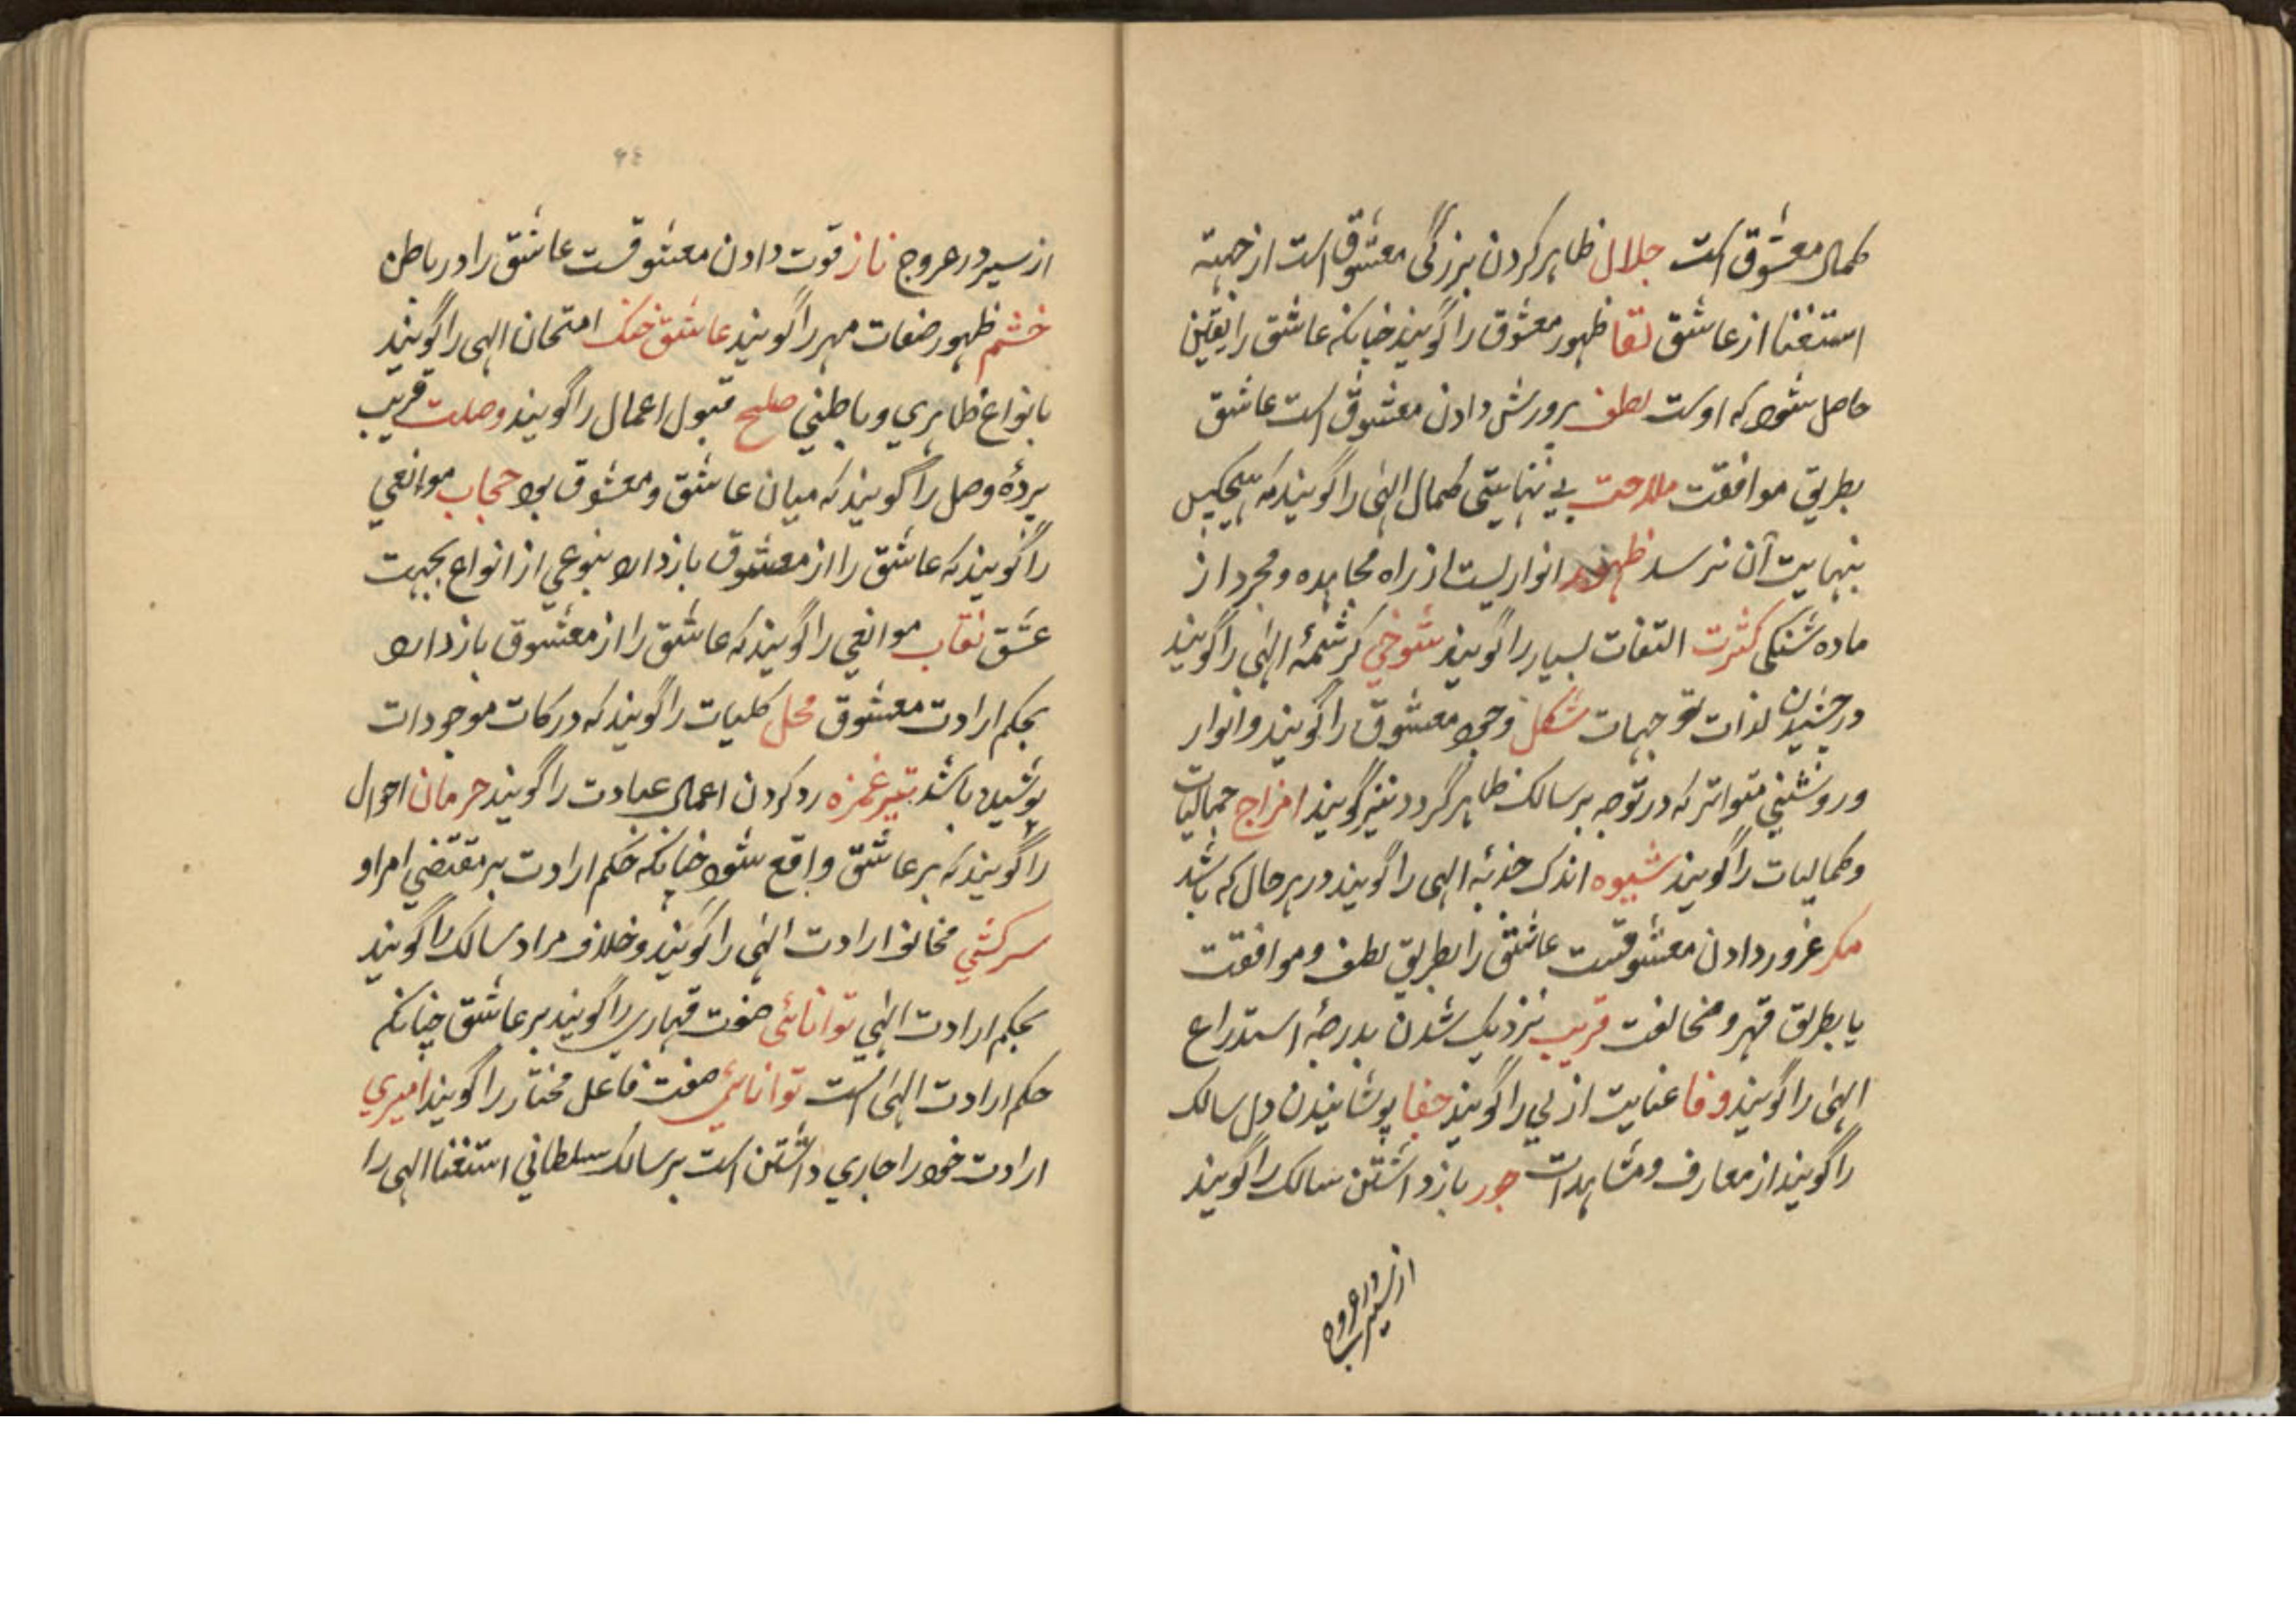 کمال معشوق است جلال ظاهر کردن بزرگی معشوق است از جهته
استغنا از عاشق لقا ظهور معشوق را گویند چنانکه عاشق را یقین
حاصل شود که اوست لطف پرورش دادن معشوق است عاشق
بطریق موافقت ملاحت بی نهایتی کمال الهی را گویند که هیچکس
بنهایت آن نرسد ظهور انواریست از راه مجاهده و مجرد از
ماده شنکی کثرت التفات بسیار را گویند شوخی کرشمهٔ الهی را گویند
در چنین لذات توجهات شکل وجود معشوق را گویند و انوار
و روشنی متواتر که در توجه بر سالک ظاهر گردد نیز گویند امزاج جمالیات
و کمالیات را گویند شیوه اندک جذبهٔ الهی را گویند در هر حال که باشد
مکر غرور دادن معشوقست عاشق را بطریق لطف و موافقت
یا بطریق قهر و مخالفت فریب نزدیک شدن بدرجهٔ استدراج
الهی را گویند وفا عنایت ازلی را گویند جفا پوشانیدن دل سالک
را گویند از معارف و مشاهدات جور باز داشتن سالک را گویند
از سیر در عروج
۹٤
از سیر در عروج ناز قوت دادن معشوقست عاشق را در باطن
خشم ظهور صفات مهر را گویند عاشق جنک امتحان الهی را گویند
بانواع ظاهری و باطنی صلح قبول اعمال را گویند وصلت قریب
پردهٔ وصل را گویند که میان عاشق و معشوق بود حجاب موانعی
را گویند که عاشق را از معشوق باز دارد بنوعی از انواع بجهت
عشق نقاب موانعی را گویند که عاشق را از معشوق باز دارد
بحکم ارادت معشوق محل کلیات را گویند که در کات موجودات
پوشیده باشد تیر غمزه رد کردن اعمال عبادت را گویند حرمان احوال
را گویند که بر عاشق واقع شود چنانکه حکم ارادت بر مقتضی امر او
سرکشی مخالف ارادت الهی را گویند و خلاف مراد سالک را گویند
بحکم ارادت الهی توانائی صفت قهاری را گویند بر عاشق چنانکه
حکم ارادت الهی است توانائی صفت فاعل مختار را گویند امیری
ارادت خود را جاری داشتن است بر سالک سلطانی استغنا الهی را